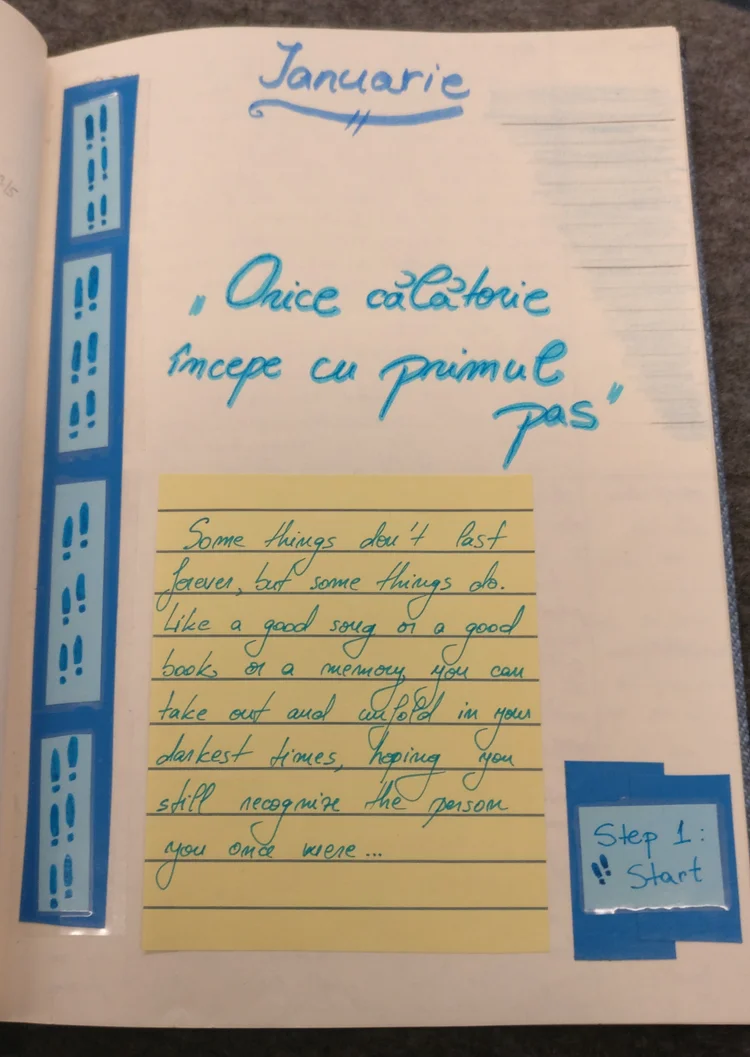 Ianuarie
„Orice călătorie
începe cu primul
pas"
Some things don't last
forever, but some things do.
Like a good song or a good
book, or a memory you can
take out and unfold in your
darkest times, hoping you
still recognize the person
you once were...
Step 1:
Start